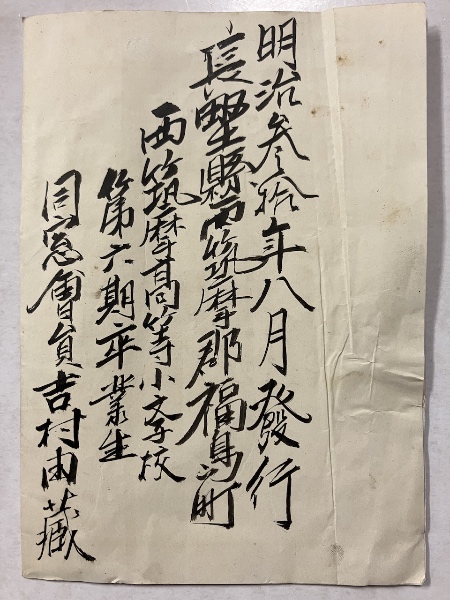 明治参拾年八月發行
長野縣西筑摩郡福島町
西筑摩高等小学校
第六期卒業生
同窓會員吉村由藏